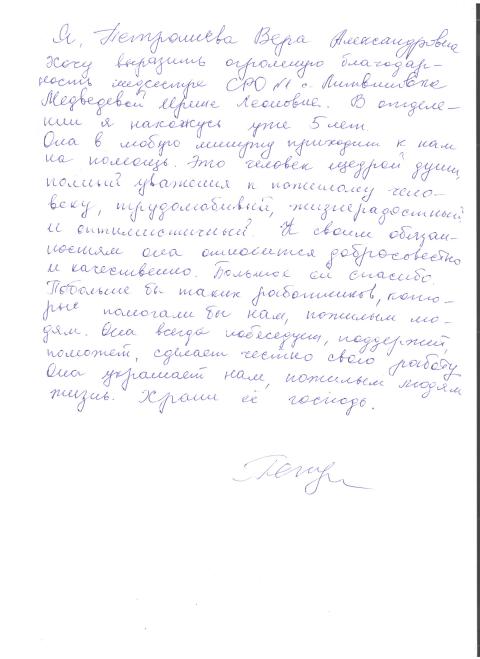 Я, Петрашева Вера Александровна
хочу выразить огромную благодар-
ность медсестре СРО №1 с. Литвиновка
Медведевой Ирине Леоновне. В отделе-
нии я нахожусь уже 5 лет.
Она в любую минуту приходит к нам
на помощь. Это человек щедрой души,
полный уважения к пожилому чело-
веку, трудолюбивый, жизнерадостный
и оптимистичный. К своим обязан-
ностям она относится добросовестно
и качественно. Большое ей спасибо.
Побольше бы таких работников, кото-
рые помогали бы нам, пожилым лю-
дям. Она всегда побеседует, поддержит,
поможет, сделает честно свою работу
Она украшает нам, пожилым людям
жизнь. Храни её господь.